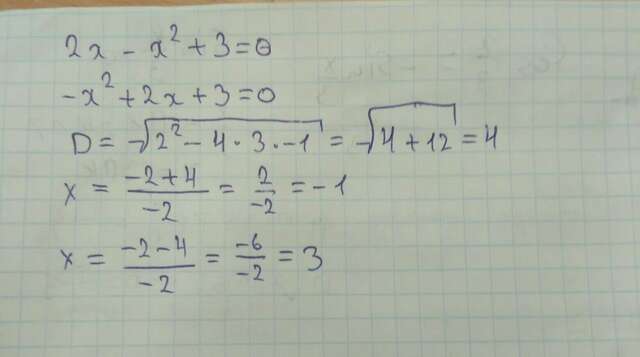 2x - x² + 3 = 0
-x² + 2x + 3 = 0
D = √(2² - 4 · 3 · -1) = √(4 + 12) = 4
x = (-2 + 4)/(-2) = 2/(-2) = -1
x = (-2 - 4)/(-2) = -6/(-2) = 3